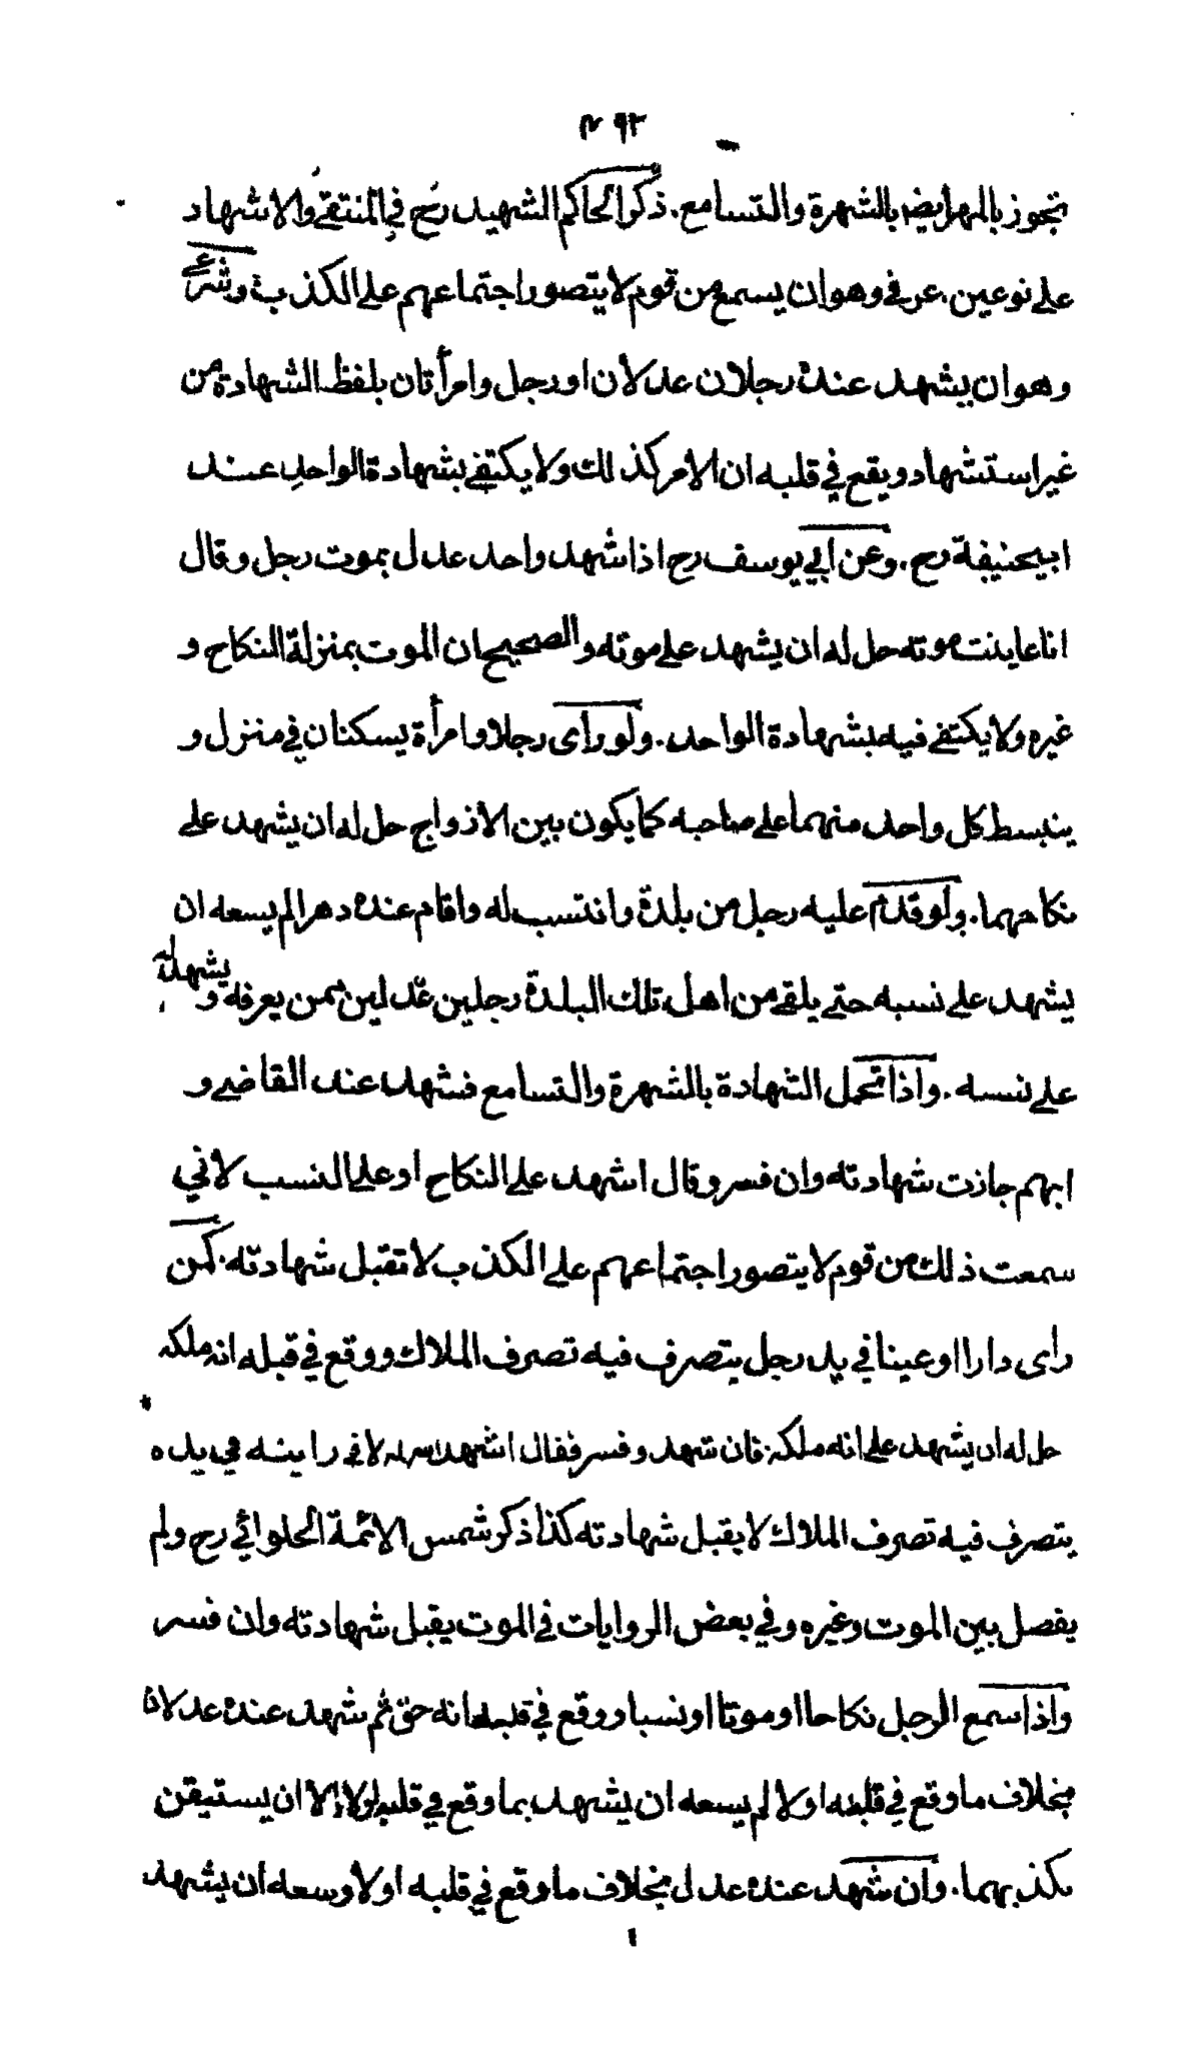 ٤٩٣
تجوز بالمهر ايضا بالشهرة والتسامع. ذكر الحاكم الشهيد رح في المنتقى والاشهاد
على نوعين عرفي وهو ان يسمع من قوم لا يتصور اجتماعهم على الكذب وشرعي
وهو ان يشهد عنده رجلان عدلان او رجل وامرأتان بلفظ الشهادة من
غير استشهاد ويقع في قلبه ان الامر كذلك ولا يكتفى بشهادة الواحد عند
ابيحنيفة رح. وعن ابي يوسف رح اذا شهد واحد عدل بموت رجل وقال
انا عاينت موته حل له ان يشهد على موته والصحيح ان الموت بمنزلة النكاح و
غيره ولا يكتفى فيه بشهادة الواحد. ولو رأى رجلا وامرأة يسكنان في منزل و
ينبسط كل واحد منهما على صاحبه كما يكون بين الازواج حل له ان يشهد على
نكاحهما. ولو قدم عليه رجل من بلدة وانتسب له واقام عنده دهرا لم يسعه ان
يشهد على نسبه حتى يلقى من اهل تلك البلدة رجلين عدلين ممن يعرفه ويشهد له
على نسبه. واذا تحمل الشهادة بالشهرة والتسامع فشهد عند القاضي و
ابهم جازت شهادته وان فسر وقال اشهد على النكاح او على النسب لاني
سمعت ذلك من قوم لا يتصور اجتماعهم على الكذب لا تقبل شهادته. كمن
رأى دارا او عينا في يد رجل يتصرف فيه تصرف الملاك ووقع في قبله انه ملكه
حل له ان يشهد على انه ملكه فان شهد وفسر فقال اشهد لاني رايته في يده
يتصرف فيه تصرف الملاك لا يقبل شهادته كذا ذكر شمس الائمة الحلوائي رح ولم
يفصل بين الموت وغيره وفي بعض الروايات في الموت يقبل شهادته وان فسر
واذا سمع الرجل نكاحا او موتا او نسبا ووقع في قلبه انه حق ثم شهد عنده عدلان
بخلاف ما وقع في قلبه اولا لم يسعه ان يشهد بما وقع في قلبه اولا الا ان يستيقن
بكذبهما. وان شهد عنده عدل بخلاف ما وقع في قلبه اولا وسعه ان يشهد